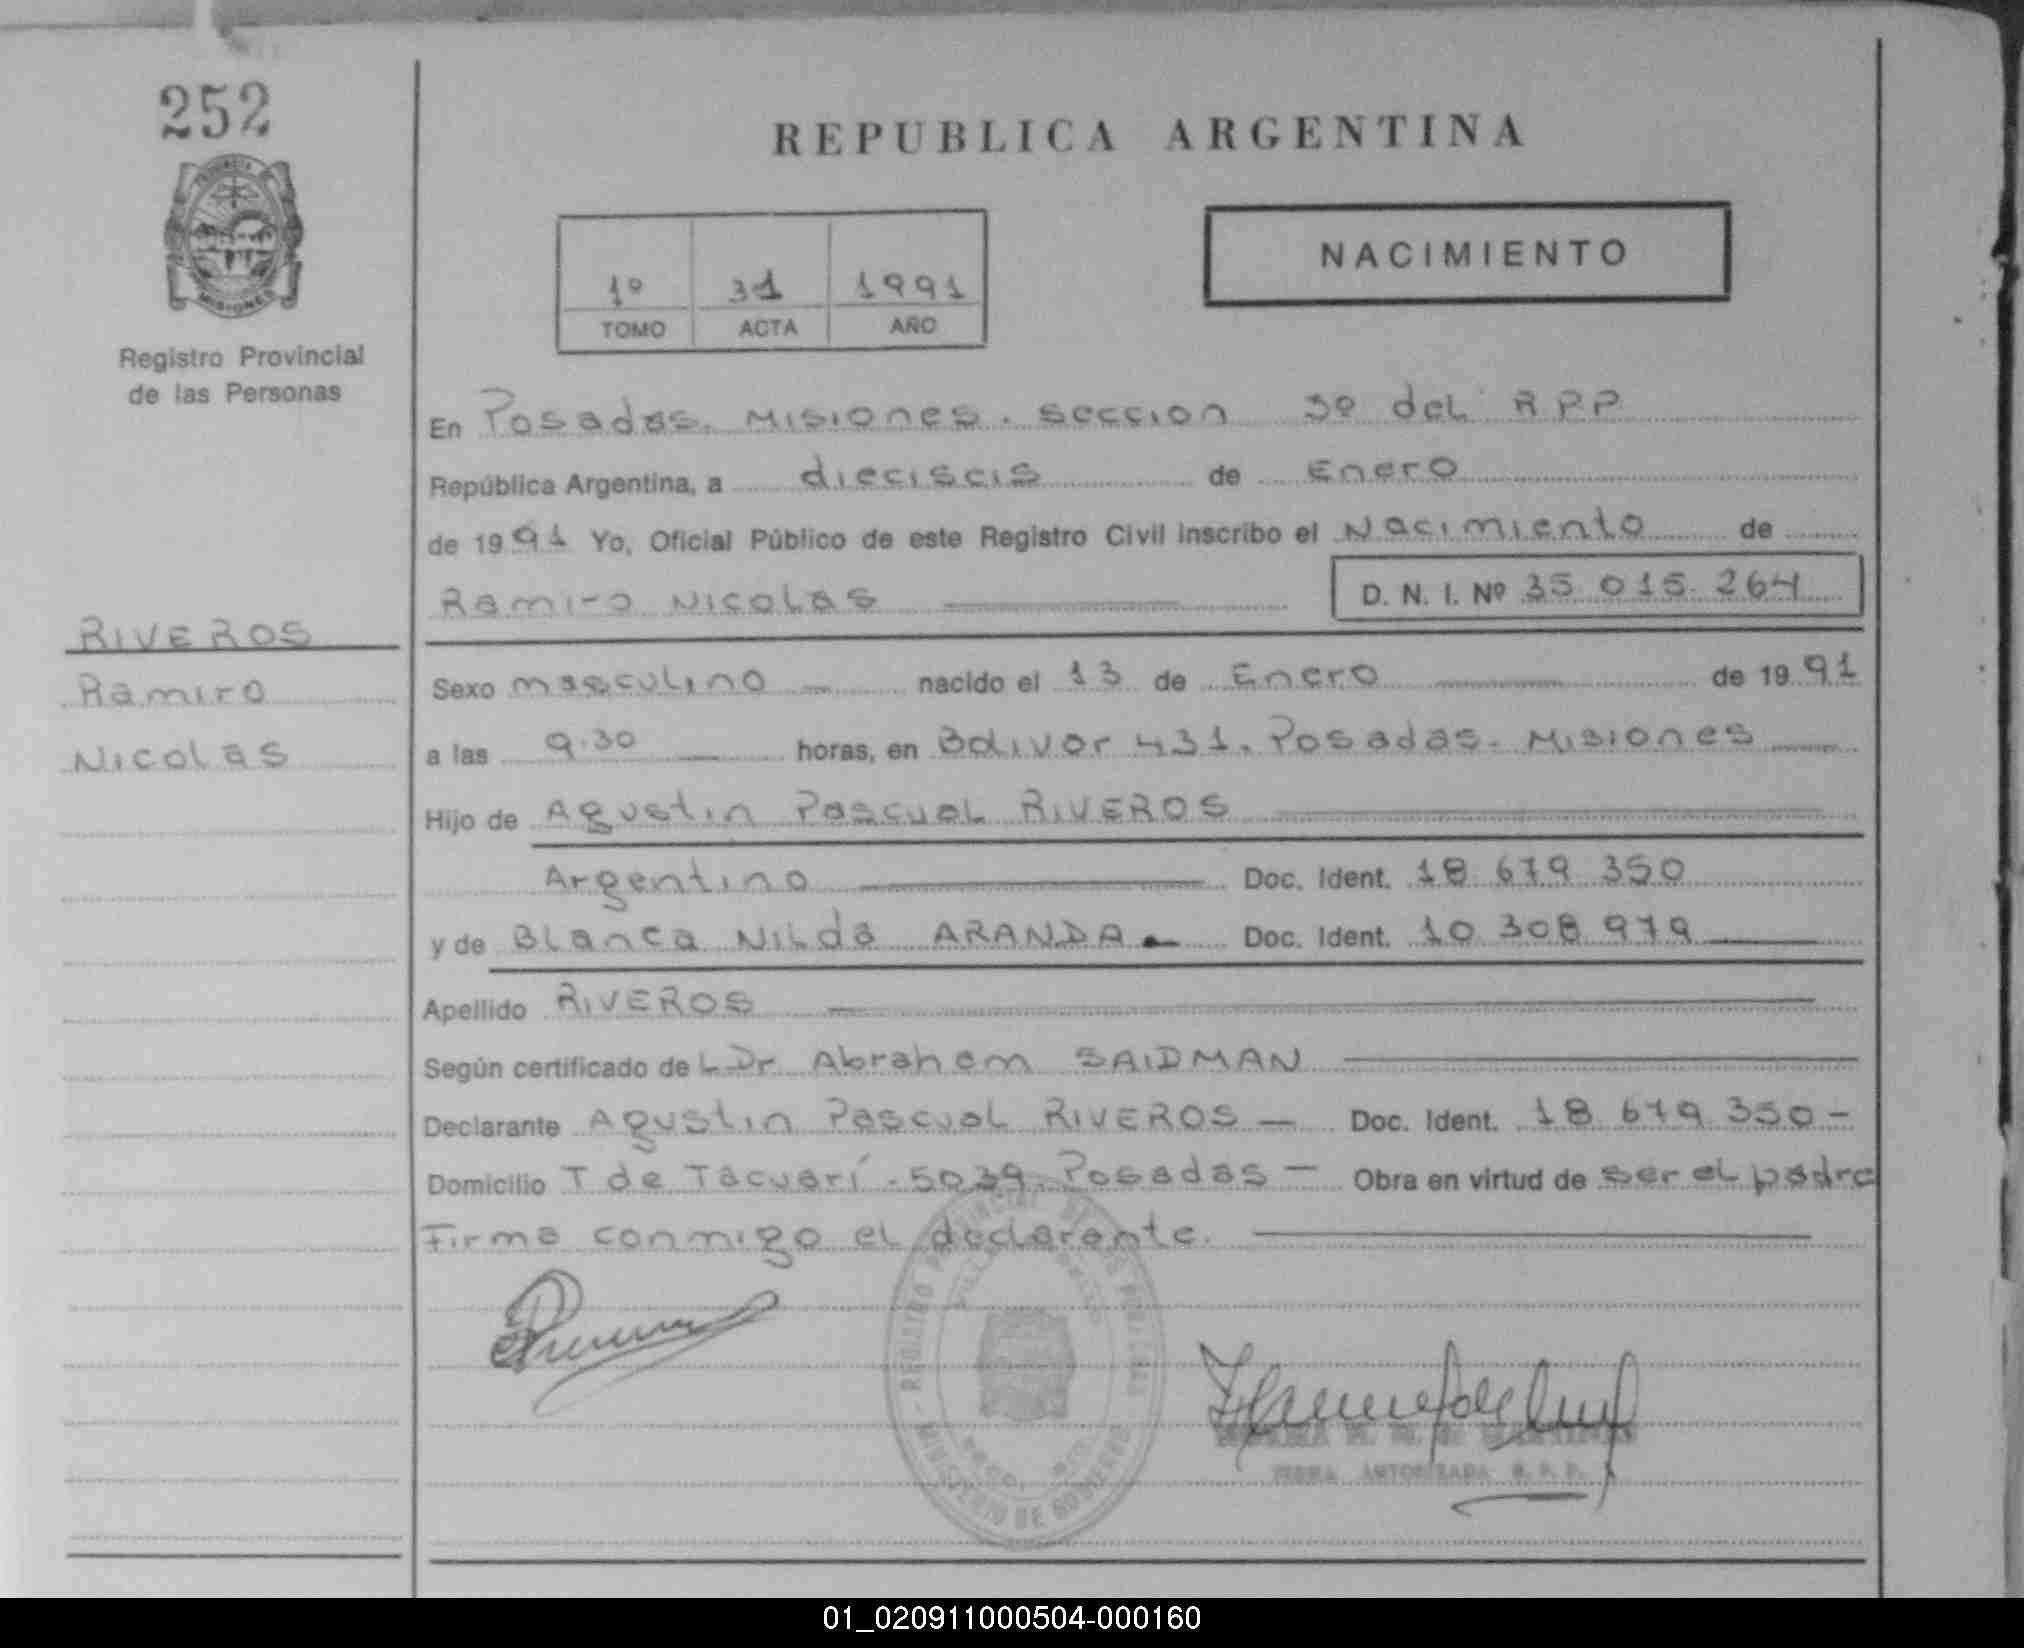 252
REPUBLICA ARGENTINA
PROVINCIA DE
MISIONES
Registro Provincial
de las Personas
1º 31 1991
TOMO ACTA AÑO
NACIMIENTO
En Posadas. Misiones. seccion 3º del RPP
República Argentina, a dieciseis de Enero
de 1991 Yo, Oficial Público de este Registro Civil inscribo el Nacimiento de
Ramiro Nicolas D. N. I. Nº 35 015. 264
RIVEROS
Ramiro
Nicolas
Sexo masculino nacido el 13 de Enero de 1991
a las 9.30 horas, en Bolivar 431. Posadas. Misiones
Hijo de Agustin Pascual RIVEROS
Argentino Doc. Ident. 18 679 350
y de Blanca Nilda ARANDA Doc. Ident. 10 308 979
Apellido RIVEROS
Según certificado de L Dr Abraham SAIDMAN
Declarante Agustin Pascual RIVEROS — Doc. Ident. 18 679 350 -
Domicilio T de Tacuarí - 5039. Posadas — Obra en virtud de ser el padre
Firma conmigo el declarante.
REGISTRO PROVINCIAL DE LAS PERSONAS
MINISTERIO DE GOBIERNO
FIRMA AUTORIZADA R. P. P.
01_020911000504-000160